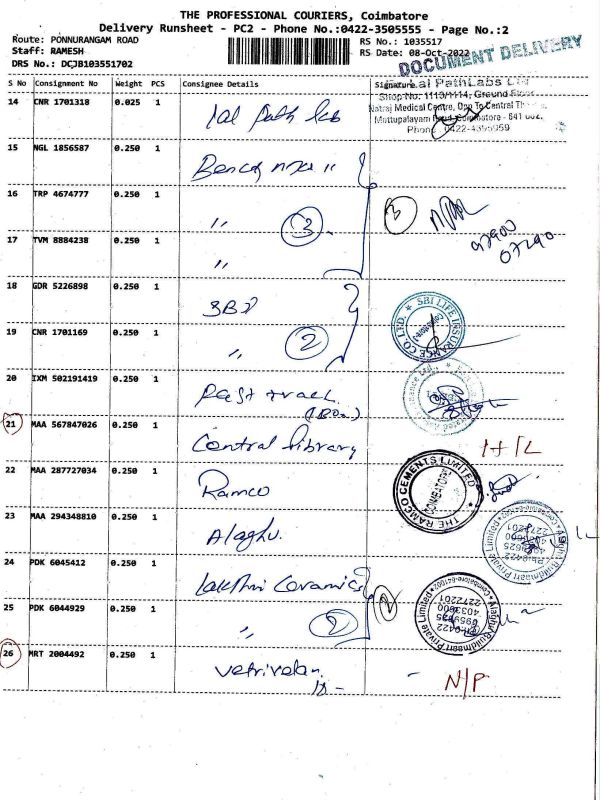 THE PROFESSIONAL COURIERS, Coimbatore
Delivery Runsheet - PC2 - Phone No.:0422-3505555 - Page No.:2
Route: PONNURANGAM ROAD
RS No.: 1035517
Staff: RAMESH
RS Date: 08-Oct-2022
DRS No.: DCJB103551702
DOCUMENT DELIVERY
S No Consignment No Weight PCS Consignee Details Signature
Lal PathLabs
Shop No: 1113/1114, Ground Floor
Natraj Medical Centre, Opp To Central
Mettupalayam Road, Coimbatore - 641 002.
Phone: 0422-4395959
14 CNR 1701318 0.025 1 lal path lab
15 NGL 1856587 0.250 1
16 TRP 4674777 0.250 1 ,, 3 3
97900
07290
17 TVM 8884238 0.250 1 ,,
18 GDR 5226898 0.250 1 SBI
SBI LIFE INSURANCE CO. LTD.
19 CNR 1701169 0.250 1 ,, 2
20 IXM 502191419 0.250 1 Fast track
21 MAA 567847026 0.250 1 Central library H/L
22 MAA 287727034 0.250 1 Ramco
THE RAMCO CEMENTS LIMITED
COIMBATORE
23 MAA 294348810 0.250 1 Alaghu.
Alaghu Buildmaari Private Limited
Coimbatore-641002
Ph:0422
4033600
2272201
24 PDK 6045412 0.250 1 Lakshmi Ceramics 2
25 PDK 6044929 0.250 1 ,, 2
Alaghu Buildmaari Private Limited
Coimbatore-641002
Ph:0422
4033600
2272201
26 MRT 2004492 0.250 1 Vetrivelan - N/P